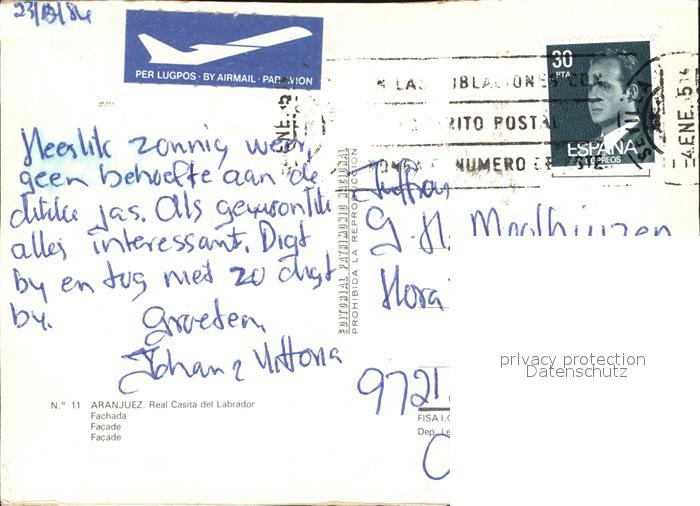 23/12/84
PER LUGPOS · BY AIRMAIL · PAR AVION
30
PTA
ESPAÑA
CORREOS
LAS POBLACIONES CON
DISTRITO POSTAL
PONGA NUMERO
SEVILLA
-4.ENE.
Heerlik zonnig weer,
geen behoefte aan de
dikke jas. Als gewoonlik
alles interessant. Digt
by en tog niet zo digt
by.
Groeten,
Johan & Vittoria
EDITORIAL PATRIMONIO NACIONAL
PROHIBIDA LA REPRODUCCION
Juffrou
G. H.
Hora
9721
privacy protection
Datenschutz
N.º 11 ARANJUEZ. Real Casita del Labrador
Fachada
Façade
Façade
FISA I.G
Dep. Le